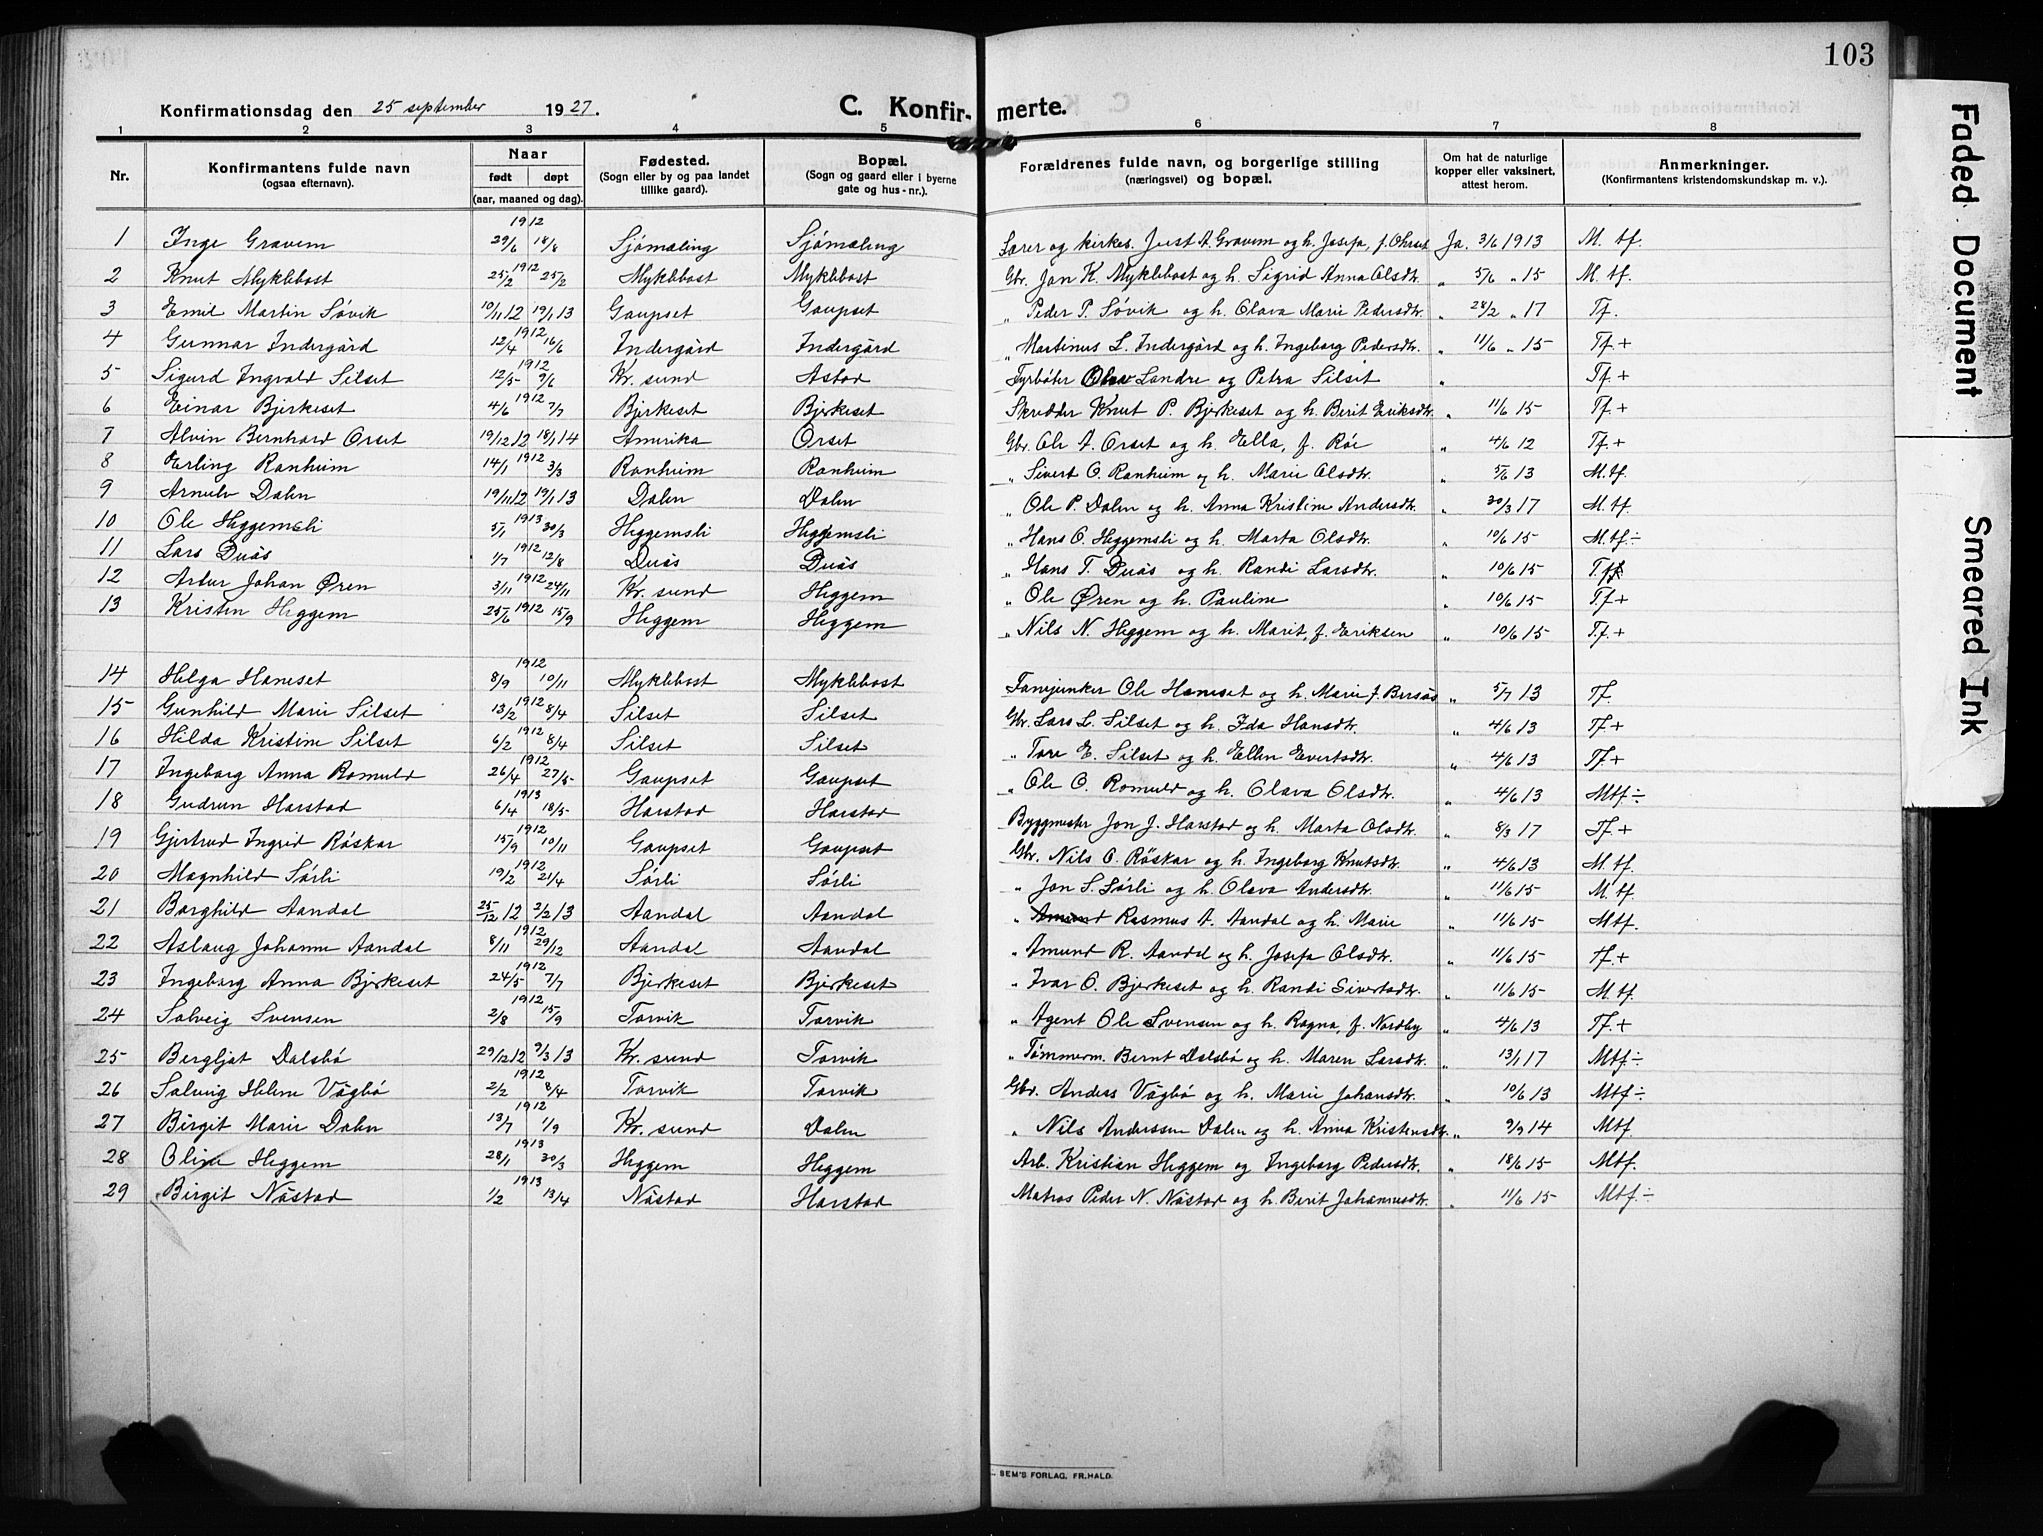 103
Konfirmationsdag den 25 september 1927.
C. Konfirmerte.
1 2 3 4 5 6 7 8
Nr.
Konfirmantens fulde navn
(ogsaa efternavn).
Naar
født døpt
(aar, maaned og dag).
Fødested.
(Sogn eller by og paa landet
tillike gaard).
Bopæl.
(Sogn og gaard eller i byerne
gate og hus-nr.).
Forældrenes fulde navn, og borgerlige stilling
(næringsvei) og bopæl.
Om hat de naturlige
kopper eller vaksinert,
attest herom.
Anmerkninger.
(Konfirmantens kristendomskundskap m. v.).
1 Inge Gravem 1912 29/6 18/8 Sjømæling Sjømæling Lærer og kirkes. Just A. Gravem og h. Josefa, f. Ohrset Ja. 3/6 1913 M. tf.
2 Knut Myklebost 1912 25/2 25/2 Myklebost Myklebost Gbr. Jon K. Myklebost og h. Sigrid Anna Olsdtr. " 5/6 " 15 M. tf.
3 Emil Martin Søvik 10/11 12 19/1 13 Gaupset Gaupset " Peder P. Søvik og h. Olava Marie Pedersdtr. " 28/2 " 17 Tf.
4 Gunnar Indergård 1912 12/4 16/6 Indergård Indergård " Martinus L. Indergård og h. Ingeborg Pedersdtr. " 11/6 " 15 Tf. +
5 Sigurd Ingvald Silset 1912 12/5 9/6 Kr. sund Astad Fyrbøter Olav Landre og Petra Silset " Tf. +
6 Einar Bjerkeset 1912 4/6 7/7 Bjerkeset Bjerkeset Skredder Knut P. Bjerkeset og h. Berit Eriksdtr. " 11/6 15 Tf. +
7 Alvin Bernhard Orset 19/12 12 18/1 14 Amerika Orset Gbr. Ole A. Orset og h. Ella, f. Röe " 4/6 12 Tf. +
8 Erling Ranheim 1912 14/1 3/3 Ranheim Ranheim " Sivert O. Ranheim og h. Marie Olsdtr. " 5/6 13 M. tf.
9 Arnulv Dalen 19/11 12 19/1 13 Dalen Dalen " Ole P. Dalen og h. Anna Kristine Andersdtr. " 30/3 17 M. tf.
10 Ole Heggemsli 1913 5/1 30/3 Heggemsli Heggemsli " Hans O. Heggemsli og h. Marta Olsdtr. " 10/6 15 M. tf ÷
11 Lars Duås 1912 1/7 12/8 Duås Duås " Hans T. Duås og h. Randi Larsdtr. " 10/6 15
12 Artur Johan Øren 1912 3/11 24/11 Kr. sund Heggem " Ole Øren og h. Pauline " 10/6 15 T.f +
13 Kristen Heggem 1912 25/6 15/9 Heggem Heggem " Nils N. Heggem og h. Marit, f. Eriksen " 10/6 15 T.f. +
14 Helga Haneset 1912 8/9 10/11 Myklebost Myklebost Fanejunker Ole Haneset og h. Marie f. Bersås " 5/7 13 Tf.
15 Gunhild Marie Silset 1912 13/2 8/4 Silset Silset Gbr. Lars L. Silset og h. Ida Hansdtr. " 4/6 13 Tf +
16 Hilda Kristine Silset 1912 6/2 8/4 Silset Silset " Tore E. Silset og h. Ellen Evertsdtr. " 4/6 13 Tf +
17 Ingeborg Anna Romuld 1912 26/4 27/5 Gaupset Gaupset " Ole O. Romuld og h. Olava Olsdtr. " 4/6 13 Mtf ÷
18 Gudrun Harstad 1913 6/4 18/5 Harstad Harstad Byggmester Jon J. Harstad og h. Marta Olsdtr. " 8/3 17 Tf. +
19 Gjertrud Ingrid Röskar 1912 15/9 10/11 Gaupset Gaupset Gbr. Nils O. Röskar og h. Ingeborg Knutsdtr. " 4/6 13 M. tf.
20 Magnhild Sörli 1912 19/2 21/4 Sörli Sörli " Jon S. Sörli og h. Olava Andersdtr. " 11/6 15 M. tf
21 Borghild Aandal 25/12 12 2/2 13 Aandal Aandal " Amund Rasmus A. Aandal og h. Marie " 11/6 15 Mtf.
22 Aslaug Johanne Aandal 1912 8/11 29/12 Aandal Aandal " Amund R. Aandal og h. Josefa Olsdtr. " 11/6 15 Tf. +
23 Ingeborg Anna Bjerkeset 1912 24/5 7/7 Bjerkeset Bjerkeset " Ivar O. Bjerkeset og h. Randi Sivertsdtr. " 11/6 15 M. tf.
24 Solveig Svensen 1912 2/8 15/9 Torvik Torvik " Agent Ole Svensen og h. Ragna, f. Nordby " 4/6 13 Tf. +
25 Bergljot Dalsbö 29/12 12 9/3 13 Kr. sund Torvik " Tømmerm. Bernt Dalsbö og h. Maren Larsdtr. " 13/1 17 Mtf ÷
26 Solveig Helene Vågbö 1912 2/2 8/4 Torvik Torvik Gbr. Anders Vågbö og h. Marie Johansdtr. " 10/6 13 Mtf ÷
27 Birgit Marie Dalen 1912 13/7 1/9 Kr. sund Dalen " Nils Anderssen Dalen og h. Anna Kristensdtr. " 9/9 14 Mtf.
28 Oline Heggem 1913 28/1 30/3 Heggem Heggem Arb. Kristian Heggem og Ingeborg Pedersdtr. " 18/6 15 Mtf.
29 Birgit Nåstad 1913 1/2 13/4 Nåstad Harstad Matros Peder N. Nåstad og h. Berit Johannesdtr. " 11/6 15 Mtf. ÷
SEM'S FORLAG, FR.HALD.
Faded Document
Smeared Ink